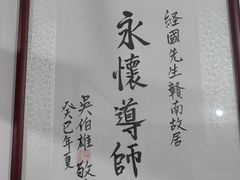 経國先生贛南故居
永懷導師
吳伯雄敬
癸巳年夏